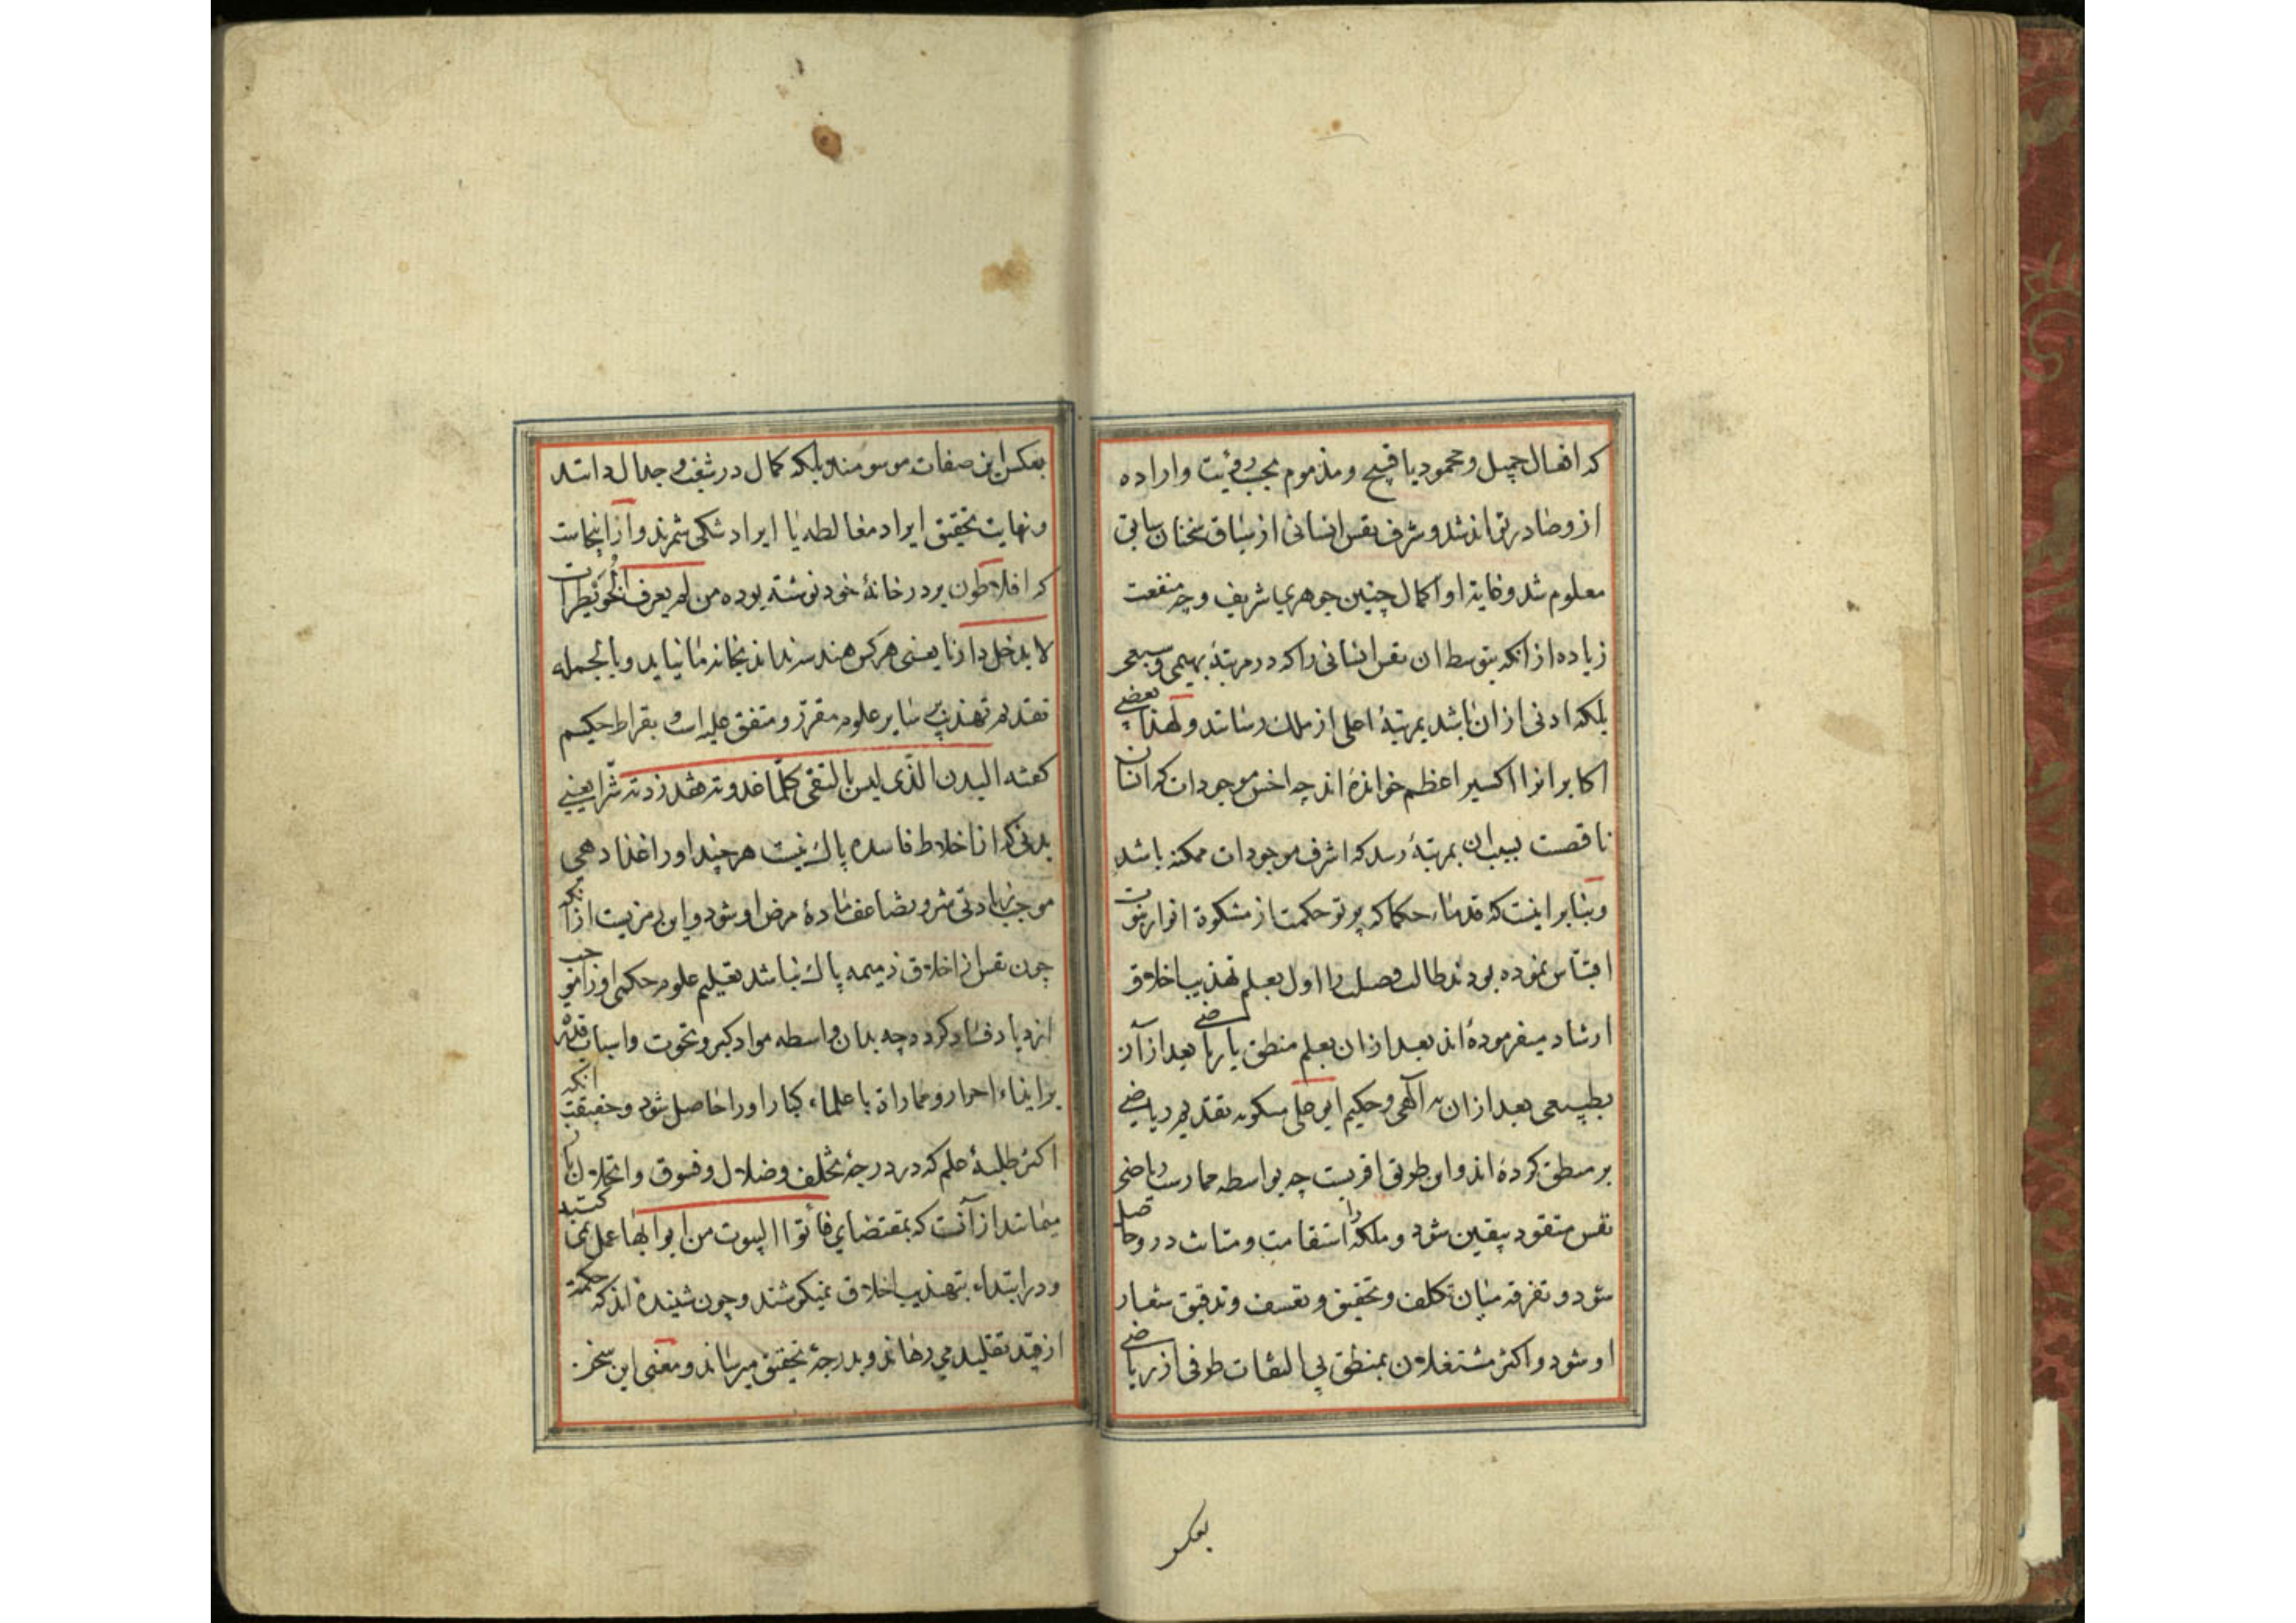 که افعال جمیل و محمود یا قبیح و مذموم بحسب رؤیت و اراده
ازو صادر تواند شد و شرف نفس انسانی از سیاق سخنان سابق
معلوم شد و غایة او اکمال چنین جوهری شریف و چه منفعت
زیاده از انکه بتوسط ان نفس انسانی را که در مرتبۀ بهیمی و سبعی
بلکه ادنی ازان باشد بمرتبۀ اعلی از ملک رساند و لهذا بعضی
اکابر انرا اکسیر اعظم خوانده اند چه اخس موجودات که انسان
ناقصست بسبب ان بمرتبۀ رسد که اشرف موجودات ممکنه باشد
و بنابر اینست که قدماء حکما که پرتو حکمت از مشکوة انوار نبوت
اقتباس نموده بودند طالب فضل را اول بعلم تهذیب اخلاق
ارشاد میفرموده اند بعد ازان بعلم منطق یا ریاضی بعد ازآن
بطبیعی بعد ازان به آلهی و حکیم ابو علی مسکویه تقدیم ریاضی
بر منطق کرده اند و این طریق اقربست چه بواسطه ممارست ریاضی
نفس متقود بیقین شود و ملکۀ استقامت و متانت درو حاصل
شود و تفرقه میان تکلف و تحقیق و تعسف و تدقیق شعار
او شود و اکثر مشتغلان بمنطق بی التفات طرفی از ریاضی
بعکس
بعکس این صفات موسومند بلکه کمال در شغب و جدال دانند
و نهایت تحقیق ایراد مغالطه یا ایراد شکی شمرند و ازاینجاست
که افلاطون بر در خانۀ خود نوشته بوده من لم یعرف
لا یدخل دارنا یعنی هر کس هندسه نداند بخانه ما نیاید و بالجمله
تقدیم تهذیب بر سایر علوم مقرر و متفق علیه است بقراط حکیم
گفته البدن الذی لیس بالنقی کلما غذوته فقد زدته شرا یعنی
بدنی که از اخلاط فاسده پاک نیست هر چند او را غذا دهی
موجب زیادتی شر و تضاعف مادۀ مرض او شود و این رمزیست ازآنکه
چون نفس از اخلاق ذمیمه پاک نباشد تعلیم علوم حکمی او را موجب
ازدیاد فساد کردد چه بدان واسطه مواد کبر و نخوت و اسباب قدرت
بر ایذاء احرار و ممارات با علماء کبار او را حاصل شود و حقیقت انکه
اکثر طلبۀ علم که در درجۀ تخلف و ضلال و فسوق و انحلال باز
میمانند ازآنست که بمقتضای فأتوا البیوت من ابوابها عمل نمی کنند
و در ابتداء بتهذیب اخلاق نمیکوشند و چون شنیده اند که حکمة
از قید تقلید می رهاند و بدرجۀ تحقیق میرساند و معنی این سخن